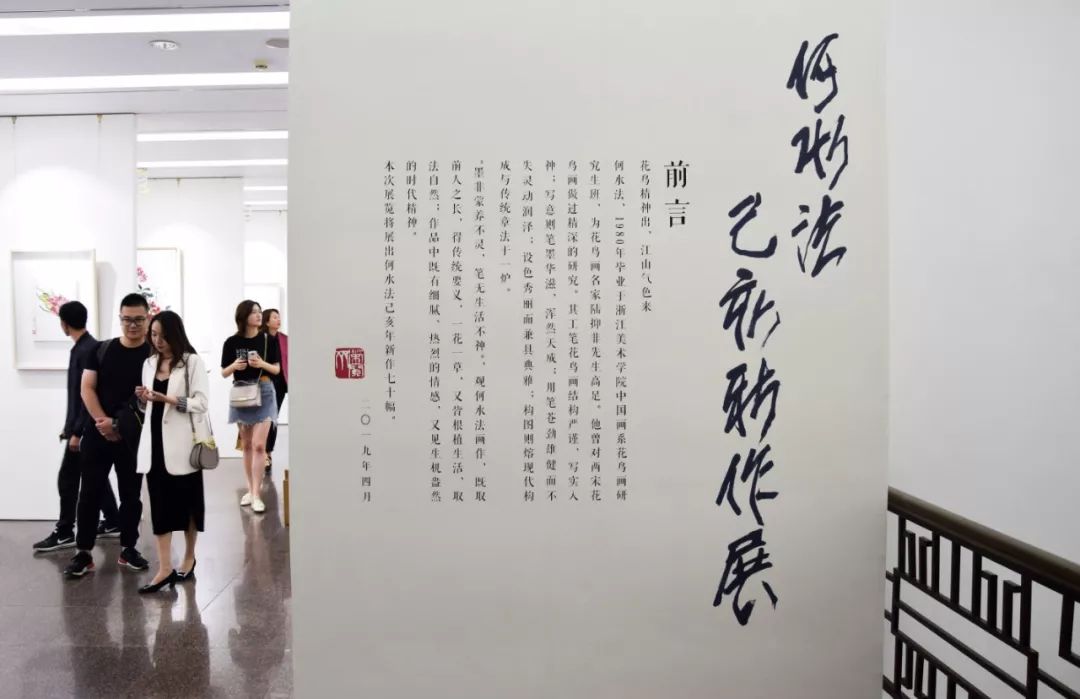 何水法
己亥新作展
前言
花鸟精神出、江山气色来
何水法，1980年毕业于浙江美术学院中国画系花鸟画研
究生班，为花鸟画名家陆抑非先生高足。他曾对两宋花
鸟画做过精深的研究。其工笔花鸟画结构严谨、写实入
神；写意则笔墨华滋、浑然天成；用笔苍劲雄健而不
失灵动润泽；设色秀丽而兼具典雅；构图则熔现代构
成与传统章法于一炉。
“墨非蒙养不灵，笔无生活不神”，观何水法画作，既取
前人之长，得传统要义，一花一草，又皆根植生活，取
法自然；作品中既有细腻、热烈的情感，又见生机盎然
的时代精神。
本次展览将展出何水法己亥年新作七十幅。
二〇一九年四月